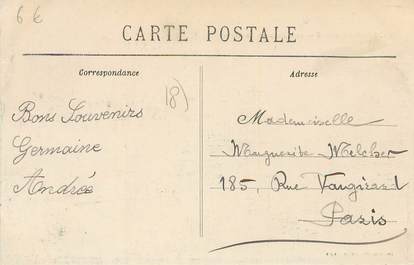 6 €
CARTE POSTALE
Correspondance
Adresse
18)
Bons Souvenirs
Germaine
Andrée
Mademoiselle
Marguerite Melcher
185, Rue Vaugirard
Paris